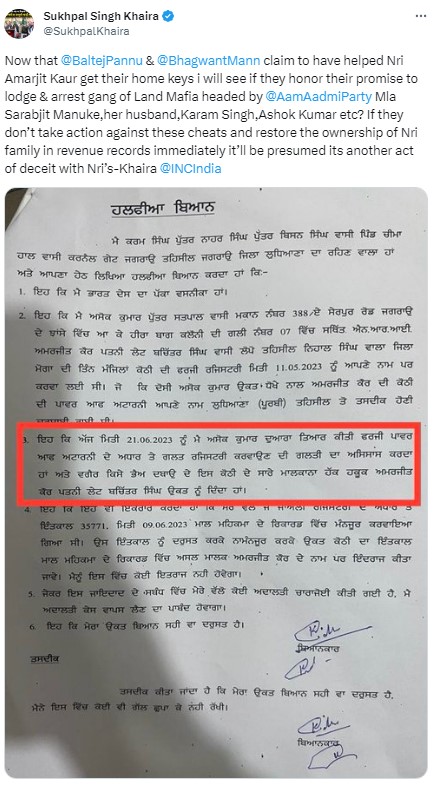 Sukhpal Singh Khaira
@SukhpalKhaira
Now that @BaltejPannu & @BhagwantMann claim to have helped Nri
Amarjit Kaur get their home keys i will see if they honor their promise to
lodge & arrest gang of Land Mafia headed by @AamAadmiParty Mla
Sarabjit Manuke,her husband,Karam Singh,Ashok Kumar etc? If they
don't take action against these cheats and restore the ownership of Nri
family in revenue records immediately it'll be presumed its another act
of deceit with Nri's-Khaira @INCIndia
ਹਲਫੀਆ ਬਿਆਨ
ਮੈ ਕਰਮ ਸਿੰਘ ਪੁੱਤਰ ਨਾਹਰ ਸਿੰਘ ਪੁੱਤਰ ਬਿਸਨ ਸਿੰਘ ਵਾਸੀ ਪਿੰਡ ਚੀਮਾ
ਹਾਲ ਵਾਸੀ ਕਰਨੈਲ ਗੇਟ ਜਗਰਾਉ ਤਹਿਸੀਲ ਜਗਰਾਉ ਜਿਲਾ ਲੁਧਿਆਣਾ ਦਾ ਰਹਿਣ ਵਾਲਾ ਹਾਂ
ਅਤੇ ਆਪਣਾ ਹੇਠ ਲਿਖਿਆ ਹਲਫੀਆ ਬਿਆਨ ਕਰਦਾ ਹਾਂ ਕਿ:-
1. ਇਹ ਕਿ ਮੈ ਭਾਰਤ ਦੇਸ ਦਾ ਪੱਕਾ ਵਸਨੀਕਾ ਹਾਂ।
2. ਇਹ ਕਿ ਮੈ ਅਸੋਕ ਕੁਮਾਰ ਪੁਤਰ ਸਤਪਾਲ ਵਾਸੀ ਮਕਾਨ ਨੰਬਰ 388/ਏ ਸੇਰਪੁਰ ਰੋਡ ਜਗਰਾਉ
ਦੇ ਝਾਂਸੇ ਵਿੱਚ ਆ ਕੇ ਹੀਰਾ ਬਾਗ ਕਲੋਨੀ ਦੀ ਗਲੀ ਨੰਬਰ 07 ਵਿੱਚ ਸਥਿੱਤ ਐਨ.ਆਰ.ਆਈ.
ਅਮਰਜੀਤ ਕੌਰ ਪਤਨੀ ਲੇਟ ਬਚਿੱਤਰ ਸਿੰਘ ਵਾਸੀ ਲੋਪੋ ਤਹਿਸੀਲ ਨਿਹਾਲ ਸਿੰਘ ਵਾਲਾ ਜਿਲਾ
ਮੋਗਾ ਦੀ ਤਿੰਨ ਮੰਜਿਲਾ ਕੋਠੀ ਦੀ ਫਰਜੀ ਰਜਿਸਟਰੀ ਮਿਤੀ 11.05.2023 ਨੂੰ ਆਪਣੇ ਨਾਮ ਪਰ
ਕਰਵਾ ਲਈ ਸੀ। ਜੋ ਕਿ ਦੋਸੀ ਅਸੋਕ ਕੁਮਾਰ ਉਕਤ ਧੋਖੇ ਨਾਲ ਅਮਰਜੀਤ ਕੌਰ ਦੀ ਕੋਠੀ
ਦੀ ਪਾਵਰ ਆਫ ਅਟਾਰਨੀ ਆਪਣੇ ਨਾਮ ਲੁਧਿਆਣਾ (ਪੂਰਬੀ) ਤਹਿਸੀਲ ਤੋ ਤਸਦੀਕ ਹੋਣੀ
ਇਹ ਕਿ ਅੱਜ ਮਿਤੀ 21.06.2023 ਨੂੰ ਮੈ ਅਸੋਕ ਕੁਮਾਰ ਦੁਆਰਾ ਤਿਆਰ ਕੀਤੀ ਫਰਜੀ ਪਾਵਰ
ਆਫ ਅਟਾਰਨੀ ਦੇ ਅਧਾਰ ਤੇ ਗਲਤ ਰਜਿਸਟਰੀ ਕਰਵਾਉਣ ਦੀ ਗਲਤੀ ਦਾ ਅਸਿਸਾਸ ਕਰਦਾ
ਹਾਂ ਅਤੇ ਵਗੈਰ ਕਿਸੇ ਭੈਅ ਦਬਾਉ ਦੇ ਇਸ ਕੋਠੀ ਦੇ ਸਾਰੇ ਮਾਲਕਾਨਾ ਹੱਕ ਹਕੂਕ ਅਮਰਜੀਤ
ਕੌਰ ਪਤਨੀ ਲੇਟ ਬਚਿੱਤਰ ਸਿੰਘ ਉਕਤ ਨੂੰ ਦਿੰਦਾ ਹਾਂ।
4. ਇਹ ਕਿ ਇਹ ਵੀ ਇਕਰਾਰ ਕਰਦਾ ਹਾਂ ਕਿ ਰਜਿਸਟਰੀ ਦੇ ਅਧਾਰ ਤੇ
ਇੰਤਕਾਲ 35771, ਮਿਤੀ 09.06.2023 ਮਾਲ ਮਹਿਕਮਾ ਦੇ ਰਿਕਾਰਡ ਵਿੱਚ ਮੰਨਜੂਰ ਕਰਵਾਇਆ
ਗਿਆ ਸੀ। ਉਸ ਇੰਤਕਾਲ ਨੂੰ ਦਰੁਸਤ ਕਰਕੇ ਨਾਮੰਨਜੂਰ ਕਰਕੇ ਉਕਤ ਕੋਠੀ ਦਾ ਇੰਤਕਾਲ
ਮਾਲ ਮਹਿਕਮਾ ਦੇ ਰਿਕਾਰਡ ਵਿੱਚ ਅਸਲ ਮਾਲਕ ਅਮਰਜੀਤ ਕੌਰ ਦੇ ਨਾਮ ਪਰ ਇੰਦਰਾਜ ਕੀਤਾ
ਜਾਵੇ। ਮੈਨੂੰ ਇਸ ਵਿੱਚ ਕੋਈ ਇਤਰਾਜ ਨਹੀ ਹੋਵੇਗਾ।
5. ਜੇਕਰ ਇਸ ਜਾਇਦਾਦ ਦੇ ਸਬੰਧ ਵਿੱਚ ਮੇਰੇ ਵੱਲੋ ਕੋਈ ਅਦਾਲਤੀ ਚਾਰਾਜੋਈ ਕੀਤੀ ਗਈ ਹੈ, ਮੈ
ਅਦਾਲਤੀ ਕੇਸ ਵਾਪਸ ਲੈਣ ਦਾ ਪਾਬੰਦ ਹੋਵਾਗਾ।
6. ਇਹ ਕਿ ਮੇਰਾ ਉਕਤ ਬਿਆਨ ਸਹੀ ਵਾ ਦਰੁਸਤ ਹੈ।
ਬਿਆਨਕਾਰ
ਤਸਦੀਕ
ਤਸਦੀਕ ਕੀਤਾ ਜਾਂਦਾ ਹੈ ਕਿ ਮੇਰਾ ਉਕਤ ਬਿਆਨ ਸਹੀ ਵਾ ਦਰੁਸਤ ਹੈ,
ਮੈਨੇ ਇਸ ਵਿੱਚ ਕੋਈ ਵੀ ਗੱਲ ਛੁਪਾ ਕੇ ਨਹੀ ਰੱਖੀ।
ਬਿਆਨਕਾਰ